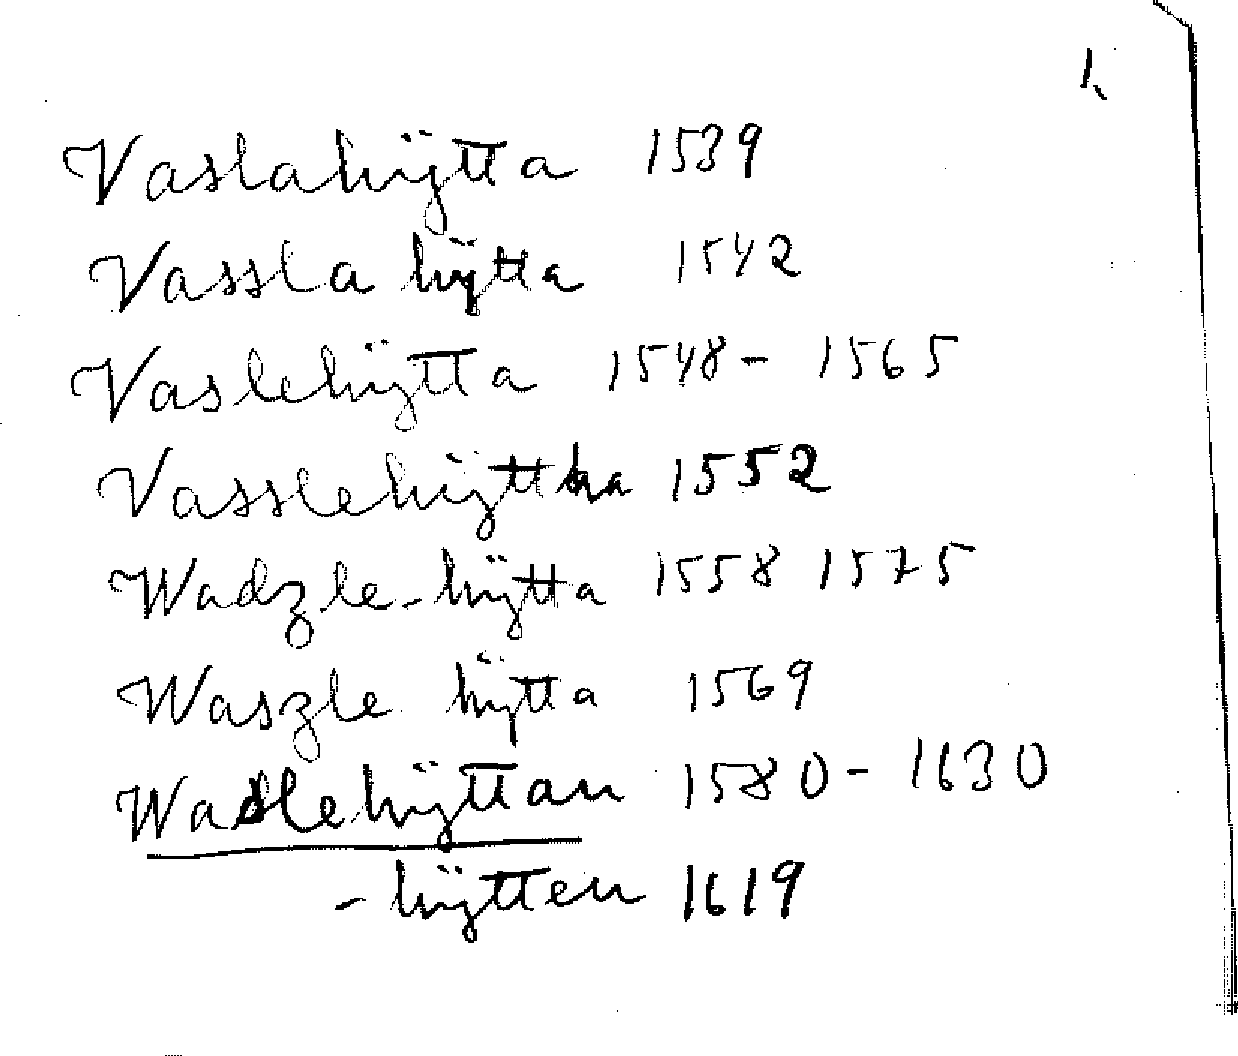 1.
Vaslahÿtta 1539
Vassla hÿtta 1542
Vaslehÿtta 1548 - 1565
Vasslehÿttha 1552
Wadzle-hÿtta 1558 1575
Waszle hÿtta 1569
Waslehÿttan 1580 - 1630
- hÿtten 1619